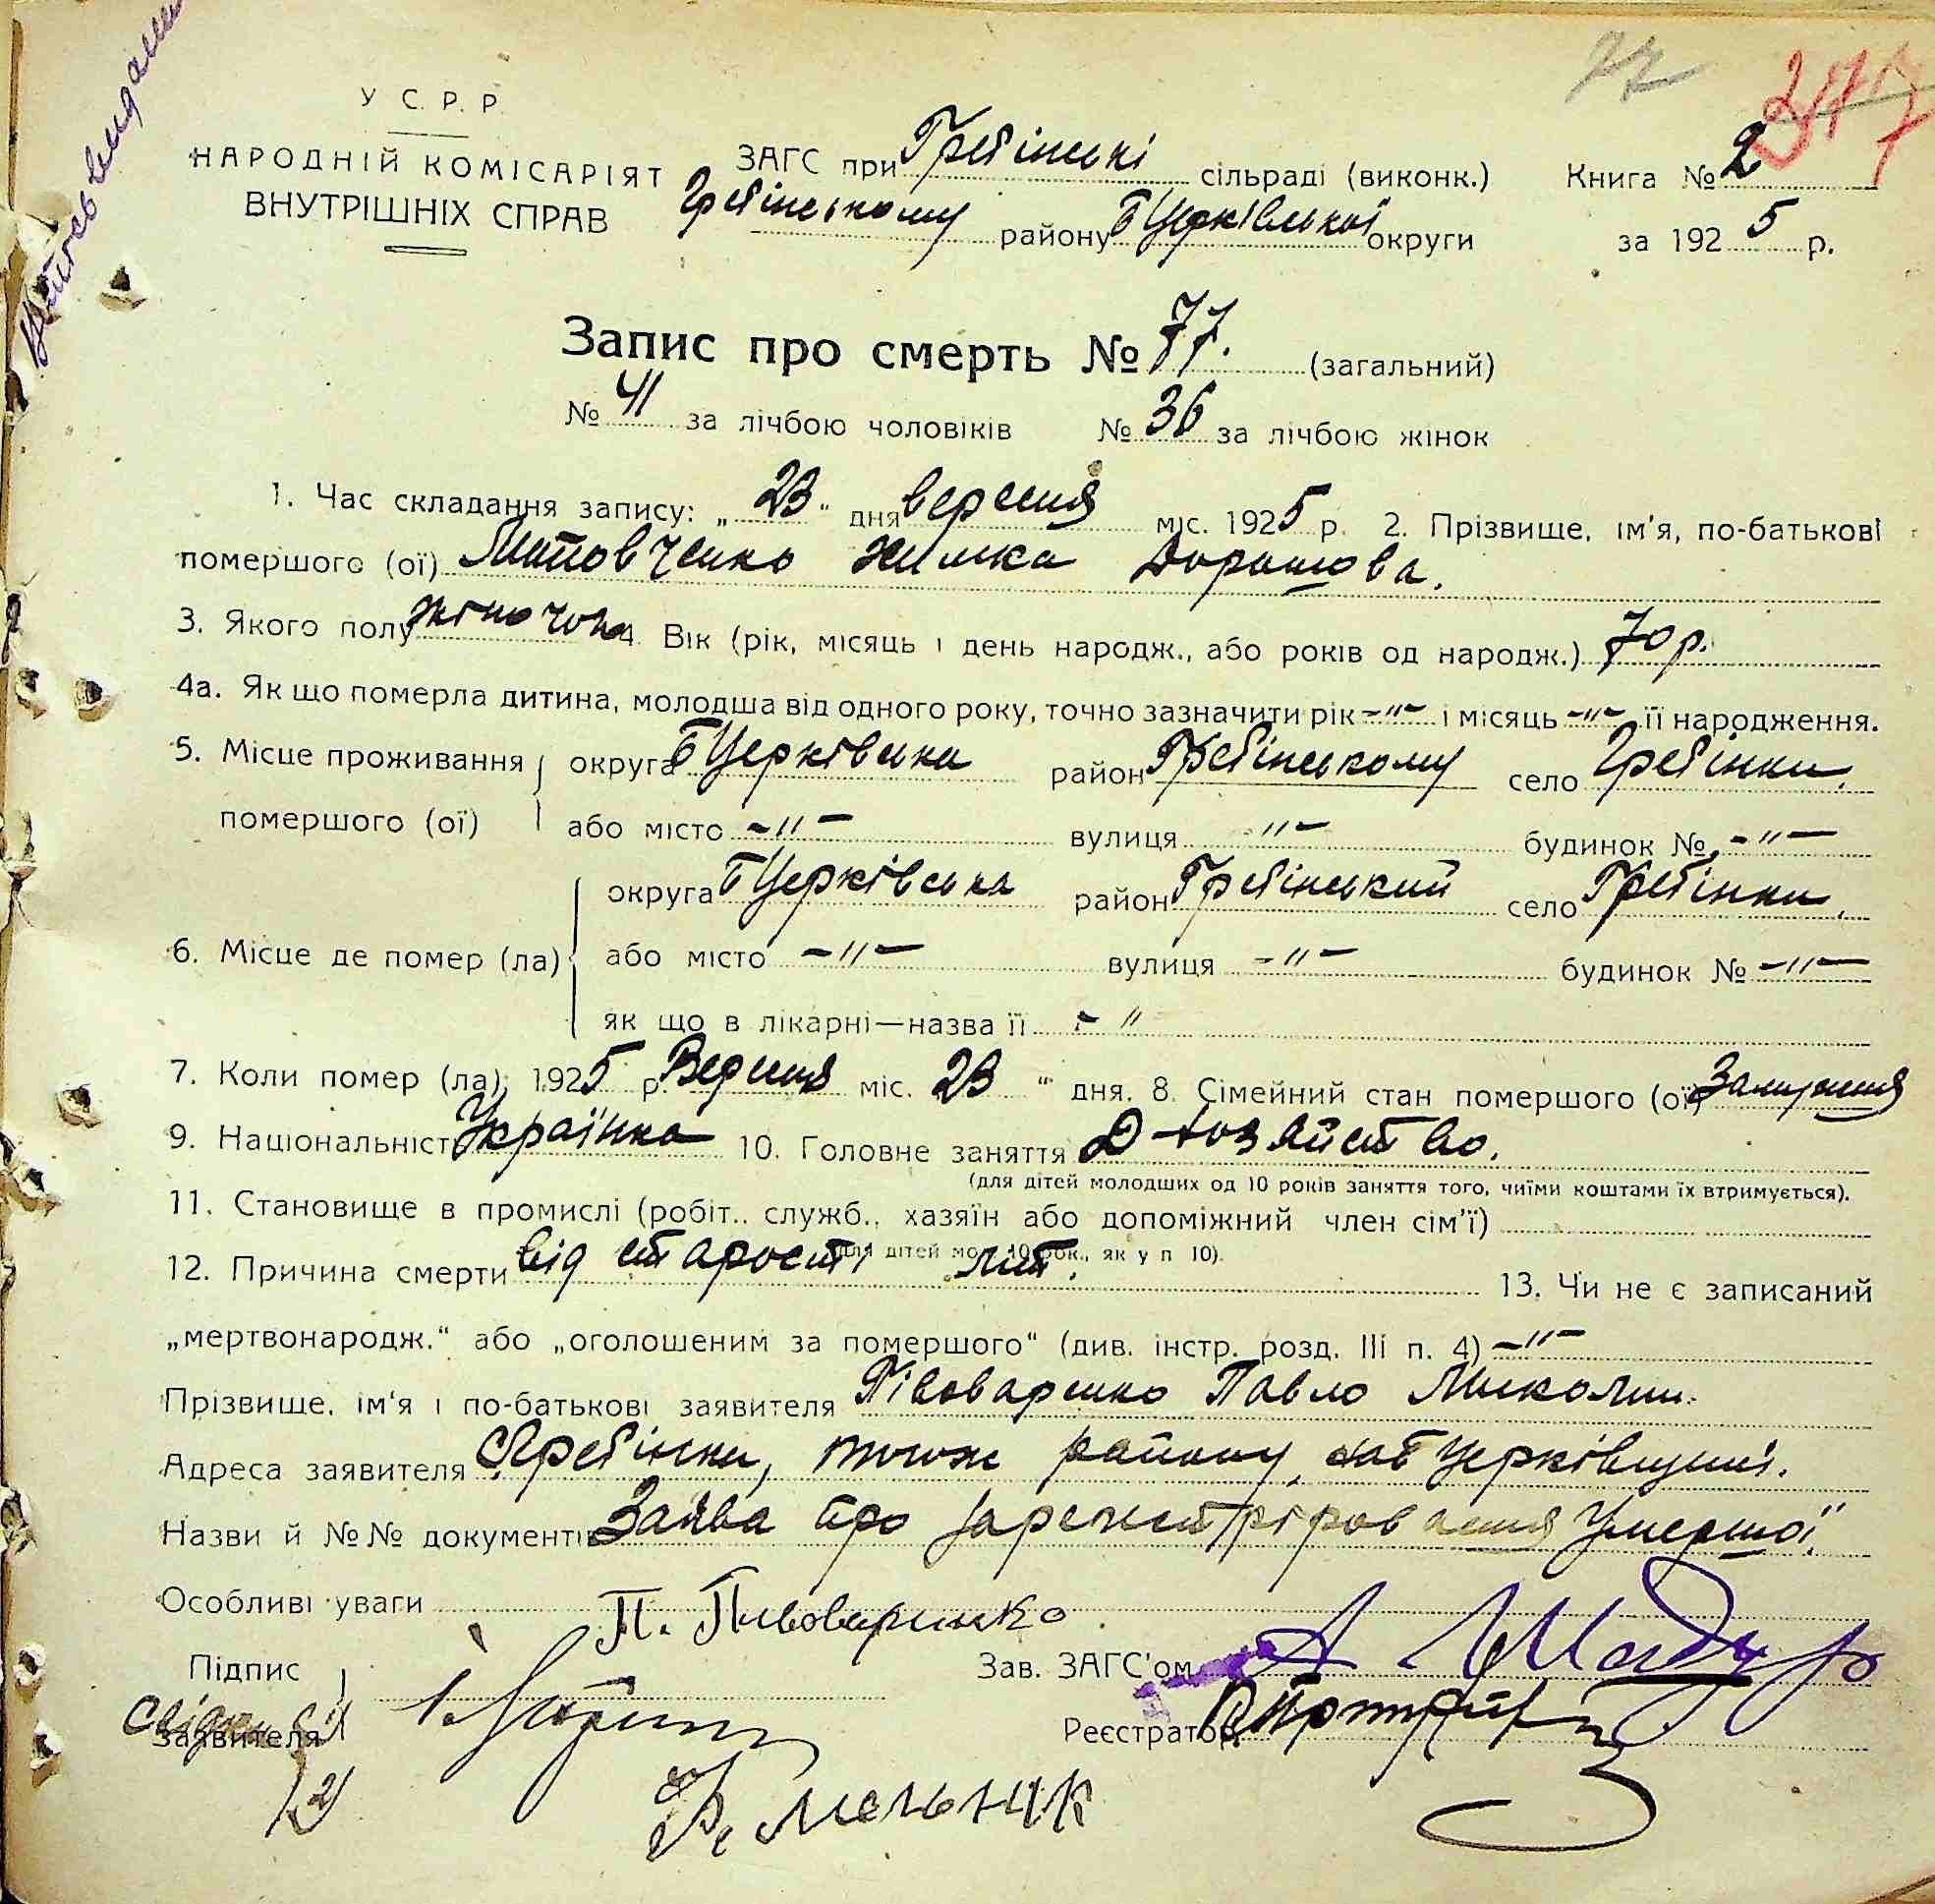 77 377
У С. Р. Р.
НАРОДНІЙ КОМІСАРІЯТ
ВНУТРІШНІХ СПРАВ
ЗАГС при Гребінські сільраді (виконк.) Книга № 2
Гребінському району БЦерківської округи за 1925 р.
Запис про смерть № 77. (загальний)
№ 41 за лічбою чоловіків № 36 за лічбою жінок
1. Час складання запису: „23“ дня вересня міс. 1925 р. 2. Прізвище, ім'я, по-батькові
помершого (ої) Химка Дорошова.
3. Якого полу жіночого 4. Вік (рік, місяць і день народж., або років од народж.) 70 р.
4а. Як що померла дитина, молодша від одного року, точно зазначити рік -"- і місяць -"- її народження.
5. Місце проживання округа БЦерківська район Гребінському село Гребінки.
помершого (ої) або місто -"- вулиця "- будинок № -"-
округа БЦерківська район Гребінський село Гребінки.
6. Місце де помер (ла) або місто -"- вулиця -"- будинок № -"-
як що в лікарні—назва її - "
7. Коли помер (ла) 1925 р. Вересня міс. 23 “ дня. 8. Сімейний стан помершого (ої)
9. Національність Українка 10. Головне заняття Д-хозяйство.
(для дітей молодших од 10 років заняття того, чиїми коштами їх втримується).
11. Становище в промислі (робіт.. служб., хазяїн або допоміжний член сім'ї)
(для дітей мол. 10 рок., як у п 10).
12. Причина смерти від старості літ. 13. Чи не є записаний
„мертвонародж.“ або „оголошеним за помершого“ (див. інстр. розд. III п. 4) -"-
Прізвище, ім'я і по-батькові заявителя Півоваренко Павло Миколин.
Адреса заявителя Гребінки, того ж району, на БЦерківщині.
Назви й №№ документів Заява про зареженстріровання Умершої.
Особливі уваги
П. Пивоваренко
Підпис Зав. ЗАГС'ом
заявителя Реєстратор
2)
Мельник